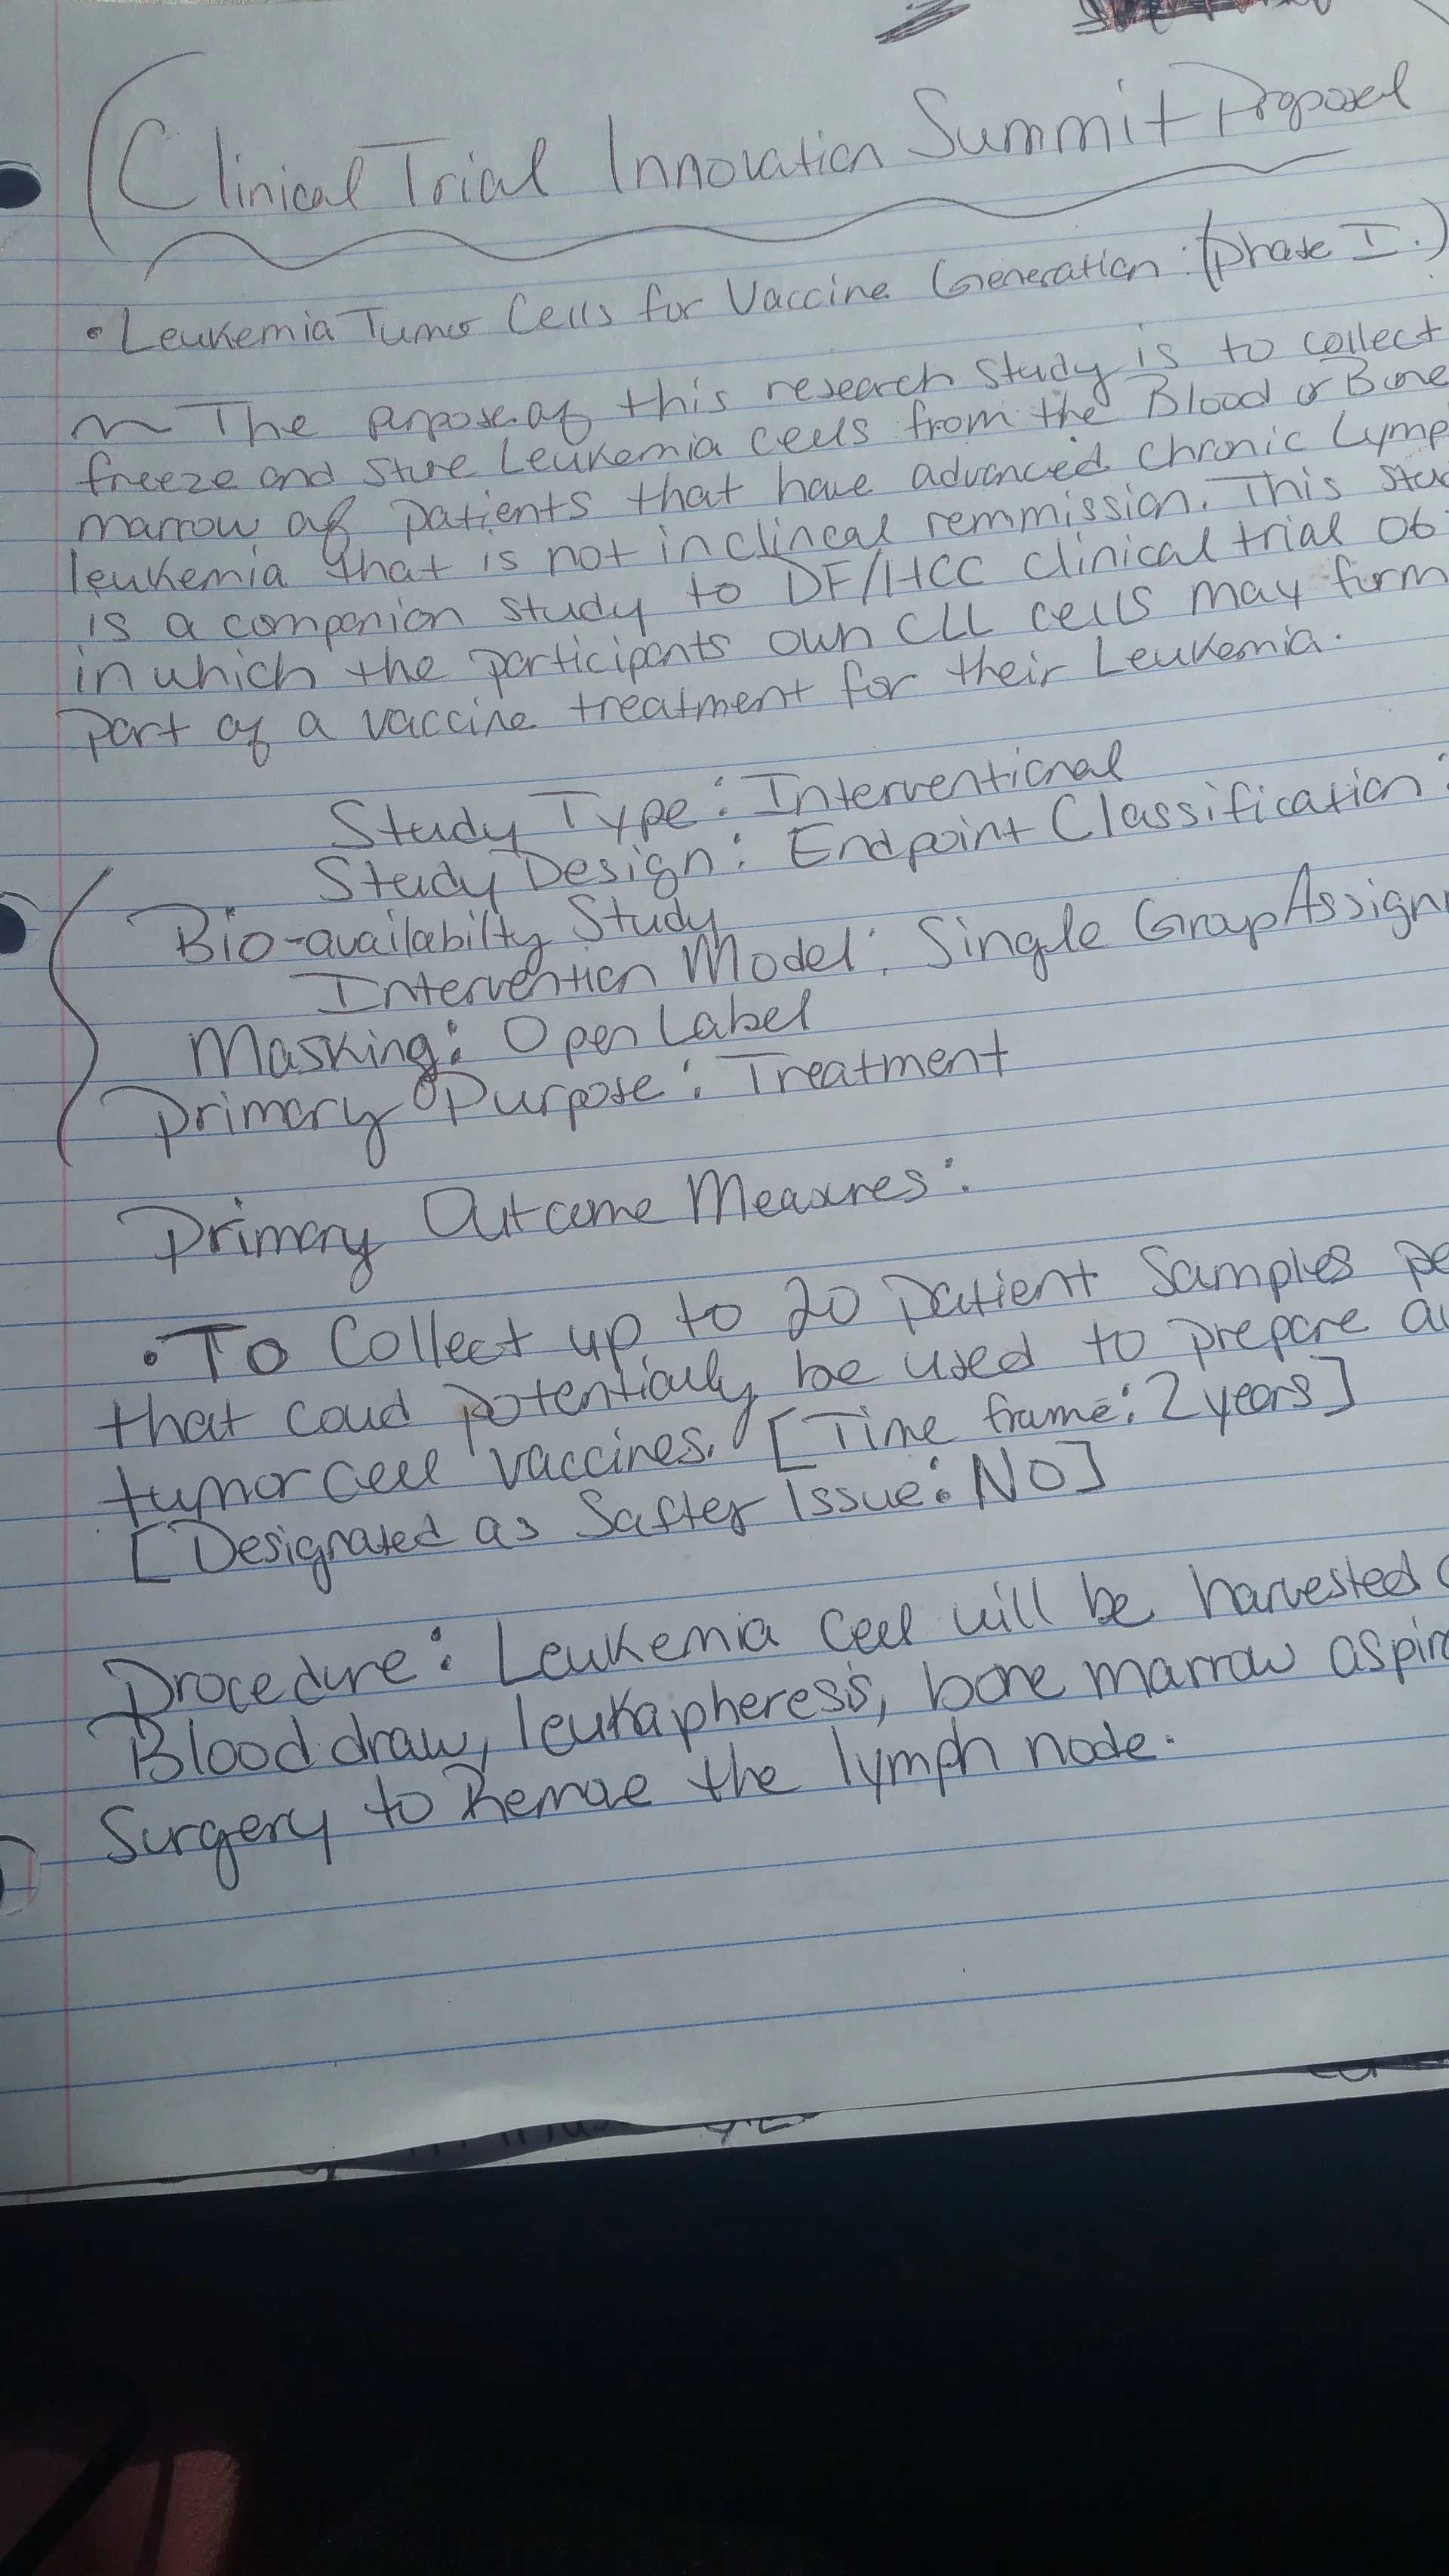 Clinical Trial Innovation Summit Proposal
• Leukemia Tumor Cells for Vaccine Generation: (Phase I.)
The purpose of this research study is to collect
freeze and store Leukemia cells from the Blood or Bone
marrow of patients that have advanced chronic Lymp
leukemia that is not in clincal remmission. This stu
is a companion study to DF/HCC clinical trial 06
in which the participants own CLL cells may form
part of a vaccine treatment for their Leukemia.
Study Type: Interventional
Study Design: Endpoint Classification:
Bio-availabilty Study
Intervention Model: Single Group Assign
Masking: Open Label
Primary Purpose: Treatment
Primary Outcome Measures:
• To Collect up to 20 patient Samples pe
that coud potentialy be used to prepare au
tumor cell vaccines. [Time frame: 2 years]
[Designated as Safter Issue: NO]
Procedure: Leukemia Cell will be harvested
Blood draw, leukapheresis, bone marrow aspir
Surgery to Remove the lymph node.